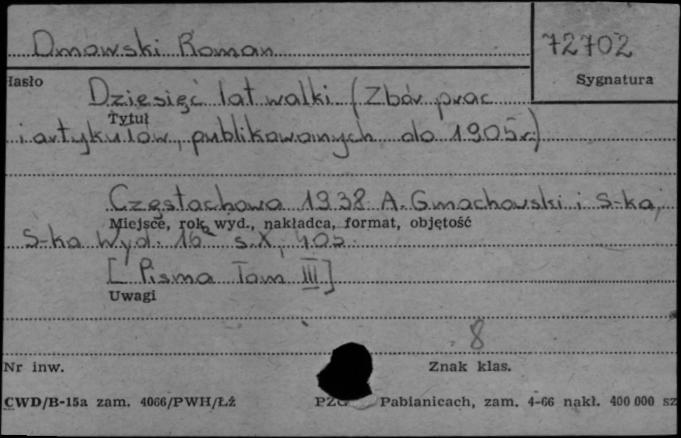 Dmowski Roman
72702
Hasło
Sygnatura
Dziesięć lat walki (Zbór prac
Tytuł
i artykułów, publikowanych do 1905r.)
Częstochowa 1938 A. Gmachowski i S-ka,
Miejsce, rok wyd., nakładca, format, objętość
S-ka Wyd. 16° s. X, 405.
[Pisma Tom III]
Uwagi
8
Nr inw.
Znak klas.
CWD/B-15a zam. 4066/PWH/Łź
PZG Pabianicach, zam. 4-66 nakł. 400 000 sz